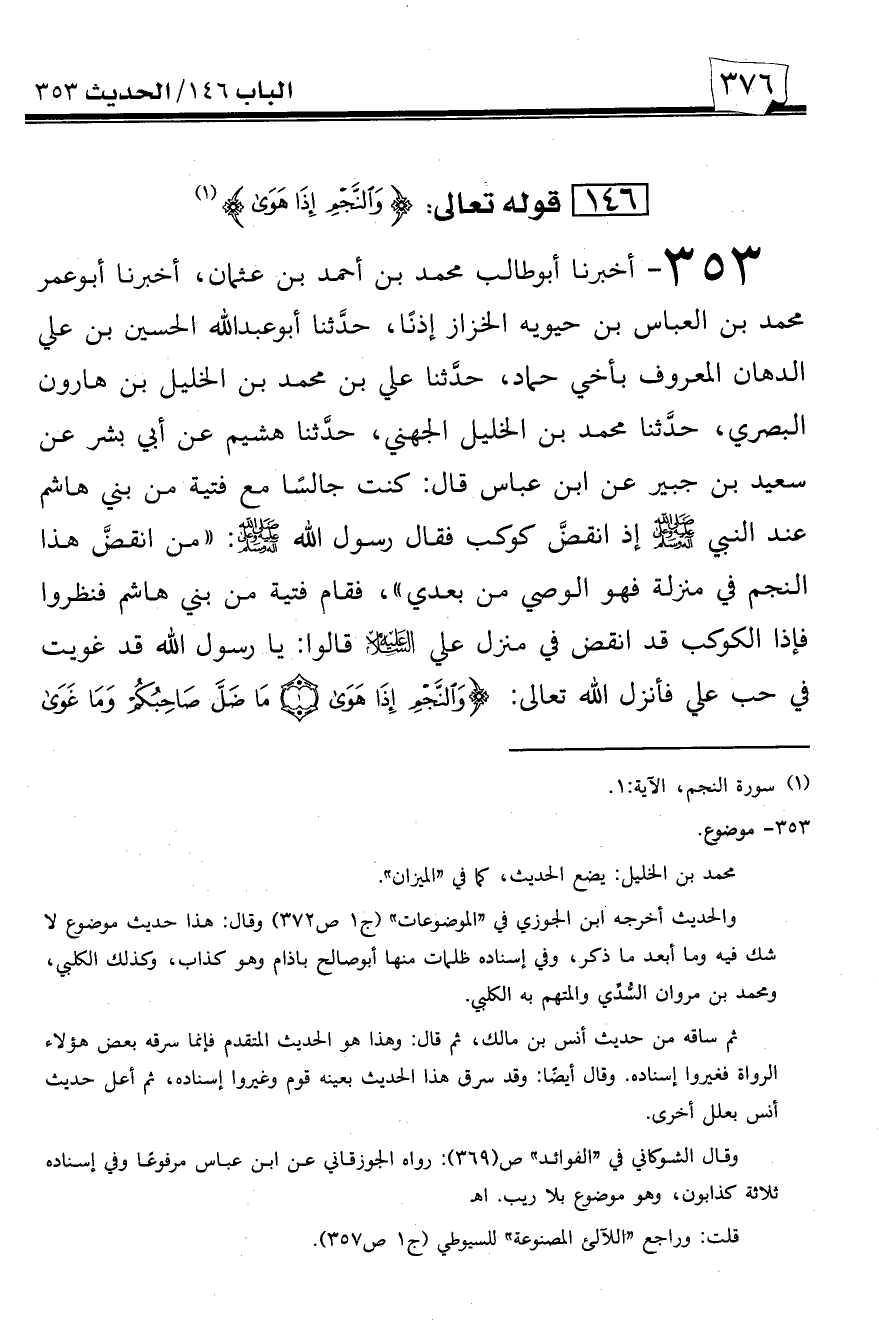 ٣٧٦
الباب ١٤٦/الحديث ٣٥٣
١٤٦ قوله تعالى: ﴿ وَٱلنَّجْمِ إِذَا هَوَىٰ ﴾ (١)
٣٥٣- أخبرنا أبوطالب محمد بن أحمد بن عثمان، أخبرنا أبوعمر
محمد بن العباس بن حيويه الخزاز إذنًا، حدَّثنا أبوعبدالله الحسين بن علي
الدهان المعروف بأخي حماد، حدَّثنا علي بن محمد بن الخليل بن هارون
البصري، حدَّثنا محمد بن الخليل الجهني، حدَّثنا هشيم عن أبي بشر عن
سعيد بن جبير عن ابن عباس قال: كنت جالسًا مع فتية من بني هاشم
عند النبي ﷺ إذ انقضَّ كوكب فقال رسول الله ﷺ: «من انقضَّ هذا
النجم في منزلة فهو الوصي من بعدي»، فقام فتية من بني هاشم فنظروا
فإذا الكوكب قد انقض في منزل علي عليه السلام قالوا: يا رسول الله قد غويت
في حب علي فأنزل الله تعالى: ﴿ وَٱلنَّجْمِ إِذَا هَوَىٰ ۝١ مَا ضَلَّ صَاحِبُكُمْ وَمَا غَوَىٰ
(١) سورة النجم، الآية:١.
٣٥٣- موضوع.
محمد بن الخليل: يضع الحديث، كما في «الميزان».
والحديث أخرجه ابن الجوزي في «الموضوعات» (ج١ ص٣٧٢) وقال: هذا حديث موضوع لا
شك فيه وما أبعد ما ذكر، وفي إسناده ظلمات منها أبوصالح باذام وهو كذاب، وكذلك الكلبي،
ومحمد بن مروان السُّدِّي والمتهم به الكلبي.
ثم ساقه من حديث أنس بن مالك، ثم قال: وهذا هو الحديث المتقدم فإنما سرقه بعض هؤلاء
الرواة فغيروا إسناده. وقال أيضًا: وقد سرق هذا الحديث بعينه قوم وغيروا إسناده، ثم أعل حديث
أنس بعلل أخرى.
وقال الشوكاني في «الفوائد» ص(٣٦٩): رواه الجوزقاني عن ابن عباس مرفوعًا وفي إسناده
ثلاثة كذابون، وهو موضوع بلا ريب. اهـ
قلت: وراجع «اللآلئ المصنوعة» للسيوطي (ج١ ص٣٥٧).